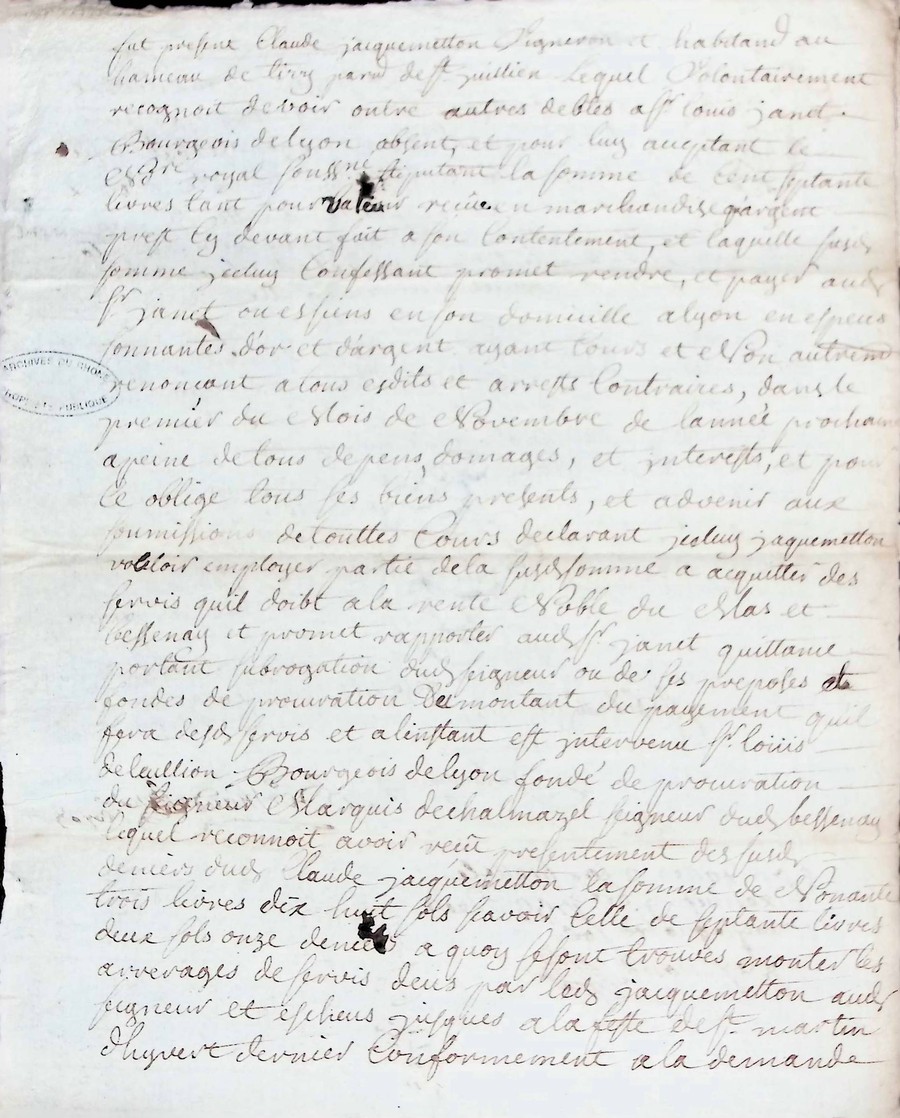 fut present Claude jacquemetton Vigneron et habitand au
hameau de parr de st jullien Lequel Volontairement
recognoit devoir outre autres debtes a sr louis janet
Bourgeois de lyon absent, et pour luy aceptant le
royal soussne stipulant la somme de Cent septante
livres tant pour valeur reçüe en marchandise qu'argent
prest Cy devant fait a son Contentement, et laquelle susd
somme jceluy Confessant promet rendre, et payer aud
sr janet ou es siens en son domicille a lyon en espeus
sonnantes d'or et d'argent ayant Cours et Non autremt
renonçant a tous esdits et arrests Contraires, dans le
premier du Mois de Novembre de lannée prochaine
apeine de tous depens, domages, et jnterests, et pour
Ce oblige tous ses biens presents, et advenir aux
soumissions de touttes Cours declarant jceluy jaquemetton
vouloir employer partie de la susd somme a acquitter des
servis quil doibt a la rente Noble du Mas et
bessenay et promet rapporter aud sr janet quittance
portant subrogation dud seigneur ou de ses preposes et
fondes de procuration Du montant du payement qu'il
fera desd servis et a linstant est jntervenu sr loüis
delaullion Bourgeois de lyon fondé de procuration
du seigneur Marquis de chalmazel seigneur dud bessenay
lequel reconnoit avoir reçû presentement des susd
deniers dud Claude jacquemetton la somme de Nonante
trois livres dix huit sols scavoir Celle de septante livres
deux sols onze deniers a quoy se sont trouves monter les
arrerages de servis deüs par led jacquemetton aud
seigneur et escheus jusques a la feste de st martin
d'hyvert dernier Conformement a la demande
ARCHIVES DU RHONE
PROPRIÉTÉ PUBLIQUE